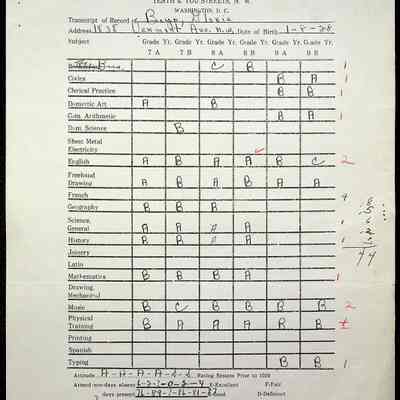 TENTH & YOU STREETS, N. W.
WASHINGTON, D. C.
Transcript of Record of
Address 1838 Vermont Ave. N.W. Date of Birth 1-8-28
Subject Grade Yr. Grade Yr. Grade Yr. Grade Yr. Grade Yr. Grade Yr.
7 A 7 B 8 A 8 B 9 A 9 B
Bus. C B 1
Civics B A 1
Clerical Practice B B 1
Domestic Art A B
Com. Arithmetic B A 1
Dom. Science B
Sheet Metal
Electricity
English A B A A B C 2
Freehand
Drawing A B A B A A
French
Geography B B B
Science,
General A A A A 1
History B B A A 1
Joinery
Latin
Mathematics B B B A 1
Drawing,
Mechanical
Music B C B B B B 2
Physical
Training B A A A B B
Printing
Spanish
Typing B B 1
Attitude A-A-A-A- Rating Session Prior to
Attend nce-days absent E-Excellent F-Fair
days present G-Good D-Deficient